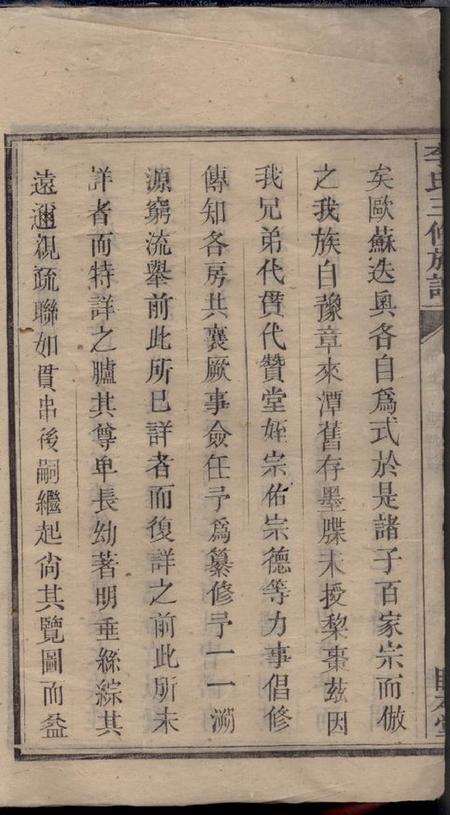 李氏三修族譜
矣歐蘇迭興各自爲式於是諸子百家宗而倣
之我族自豫章來潭舊存墨牒未授棃棗茲因
我兄弟代貫代贊堂姪宗佑宗德等力事倡修
傳知各房共襄厥事僉任予爲纂修予一一溯
源窮流舉前此所已詳者而復詳之前此所未
詳者而特詳之臚其尊卑長幼著明垂絲綜其
遠邇親疏聯如貫串後嗣繼起尙其覽圖而益